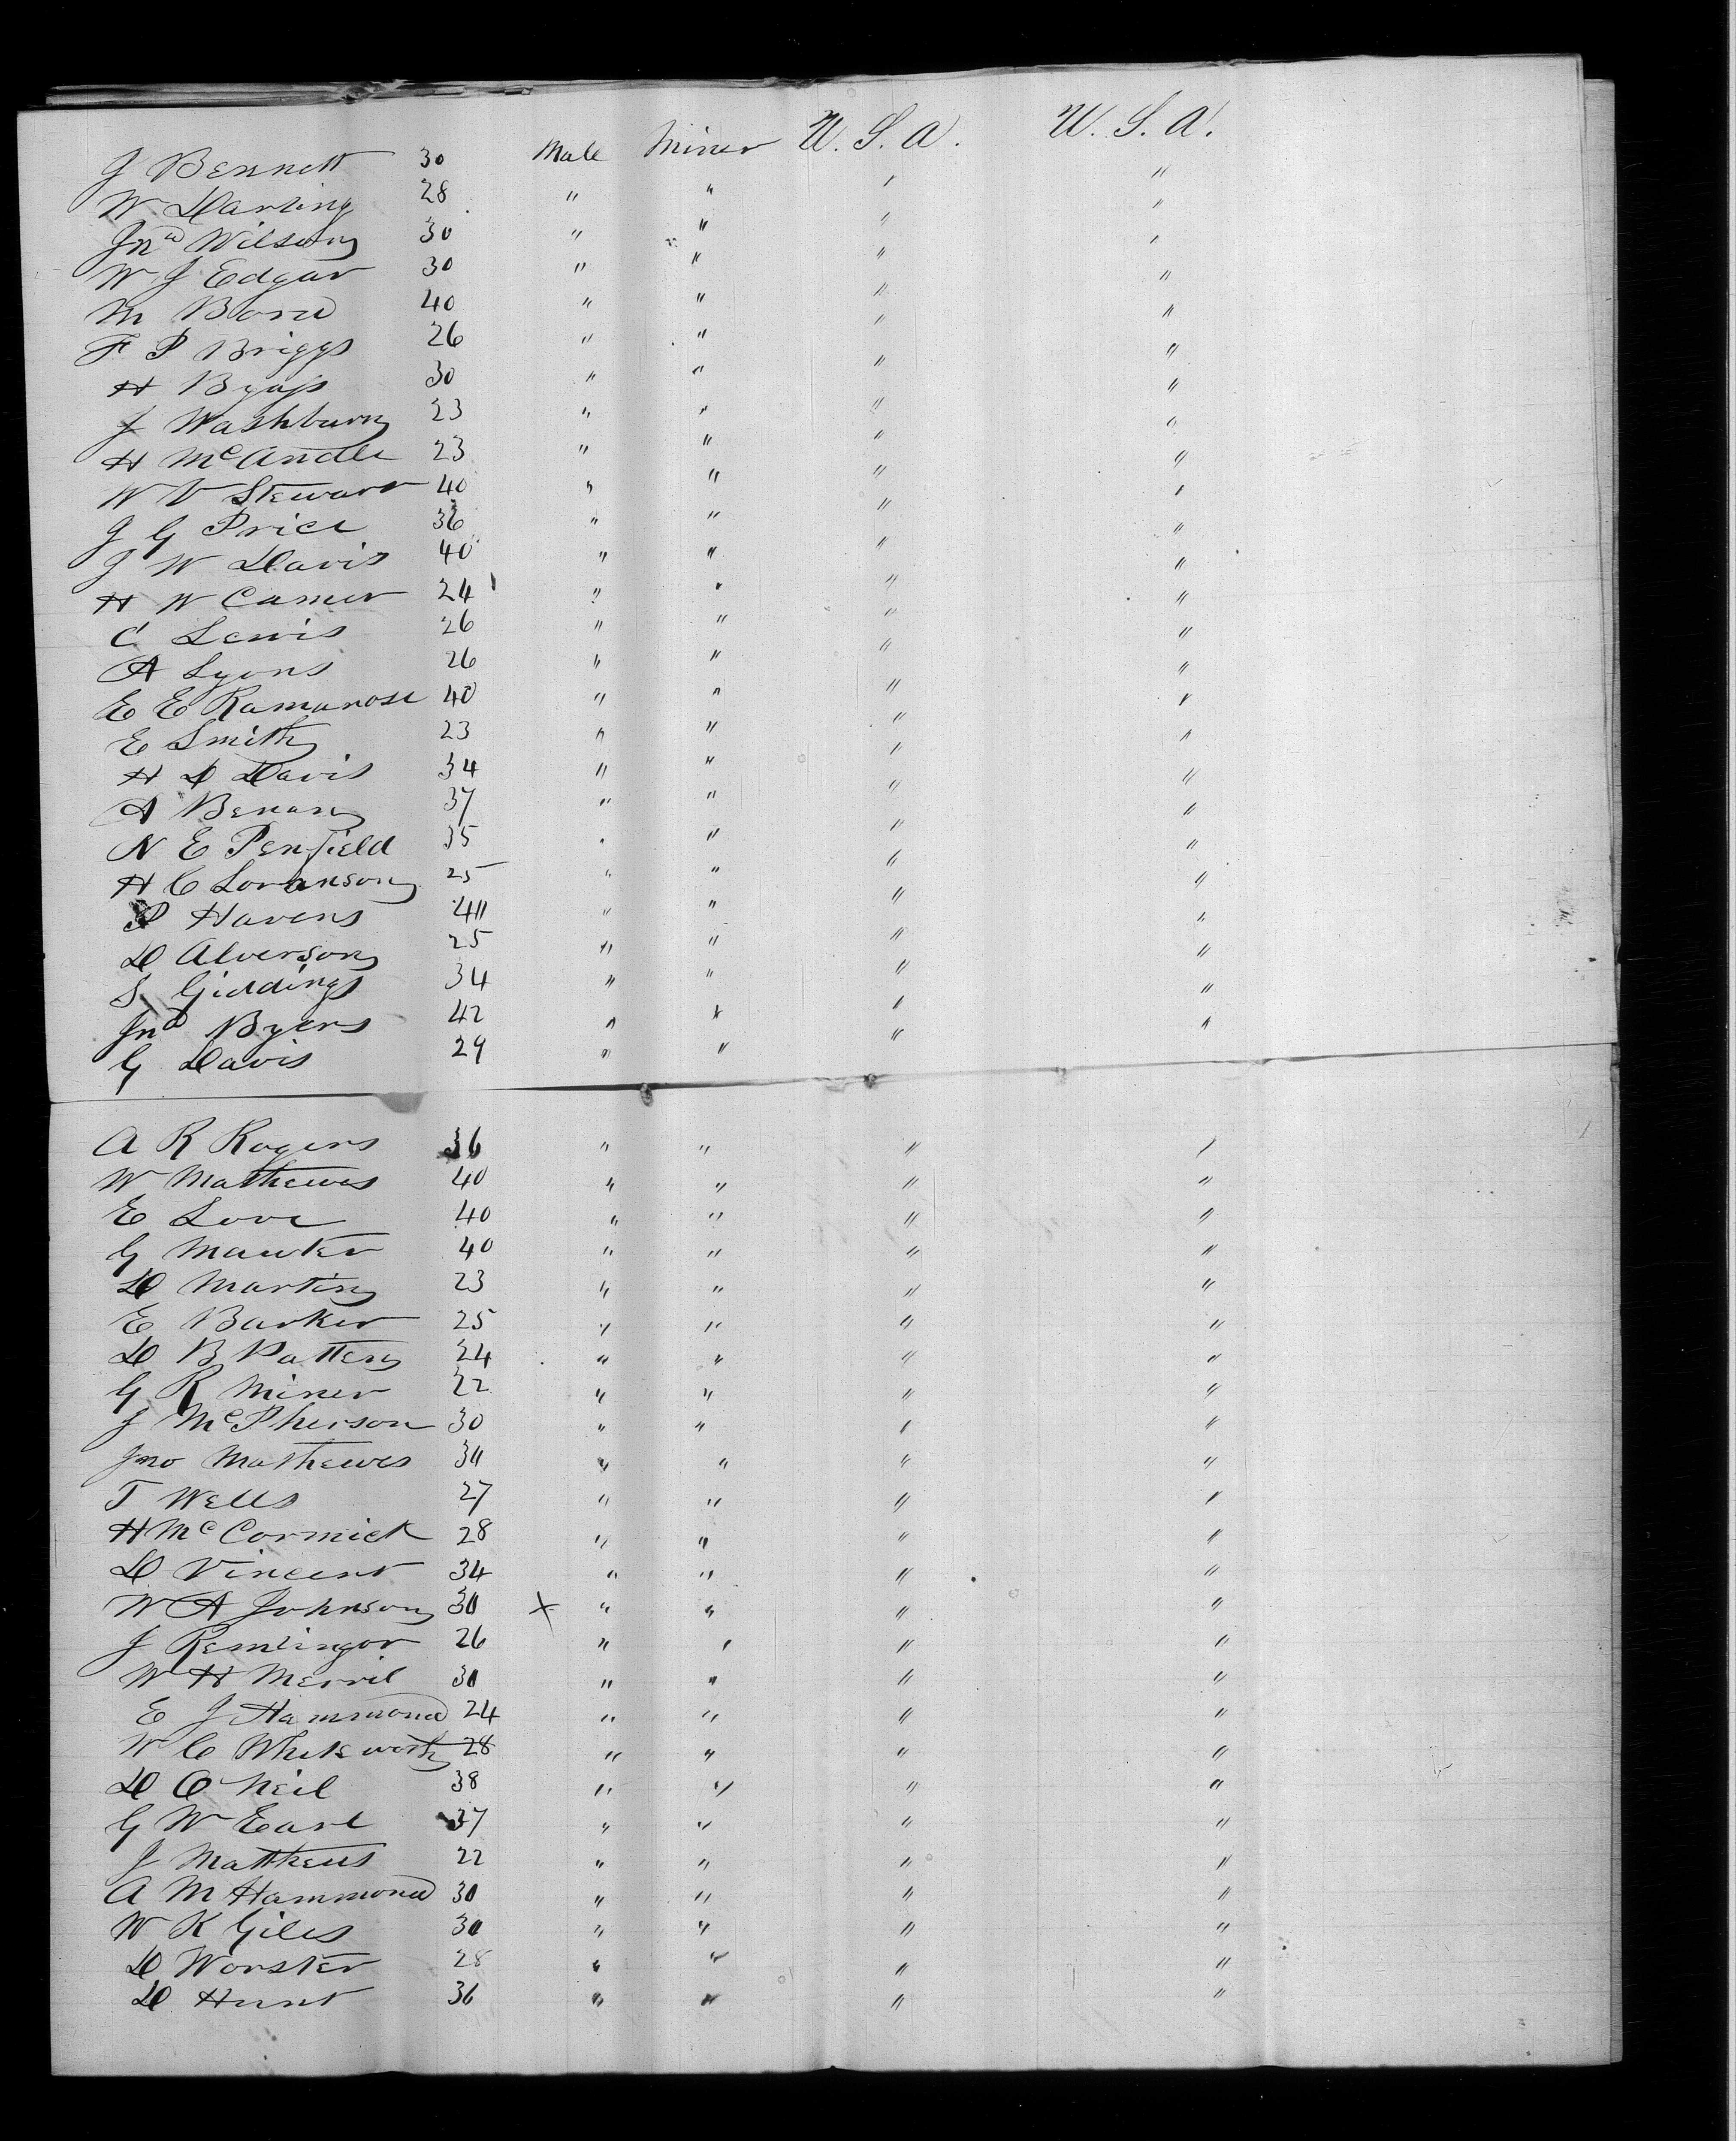 J Bennett 30 Male Miner U. S. A. U. S. A.
W Darling 28 " " " "
Jno Wilson 30 " " " "
W J Edgar 30 " " " "
M Bond 40 " " " "
F P Briggs 26 " " " "
H Byass 30 " " " "
J Washburn 23 " " " "
H McArdle 23 " " " "
W V Stewart 40 " " " "
J G Price 36 " " " "
J W Davis 40 " " " "
H W Camer 24 " " " "
C Lewis 26 " " " "
A Lyons 26 " " " "
E E Ramunose 40 " " " "
E Smith 23 " " " "
H D Davis 34 " " " "
A Benan 37 " " " "
N E Penfield 35 " " " "
H C Soranson 25 " " " "
P Havens " " " "
D Alverson 25 " " " "
S Giddings 34 " " " "
Jno Byers 42 " " " "
G Davis 29 " " " "
A R Rogers 36 " " " "
W Mathews 40 " " " "
E Love 40 " " " "
G Mauter 40 " " " "
D Martin 23 " " " "
E Barker 25 " " " "
D B Patten 24 " " " "
G R Miner 22 " " " "
J McPherson 30 " " " "
Jno Mathews 30 " " " "
T Wells 27 " " " "
H McCormick 28 " " " "
D Vincent 34 " " " "
W A Johnson 30 X " " " "
J Remlingor 26 " " " "
W H Merril 30 " " " "
E J Hammond 24 " " " "
W C Whiteworth 28 " " " "
D O Neil 38 " " " "
G W Earl 37 " " " "
J Matthews 22 " " " "
A M Hammond 30 " " " "
W K Giles 30 " " " "
D Worster 28 " " " "
D Hunt 36 " " " "